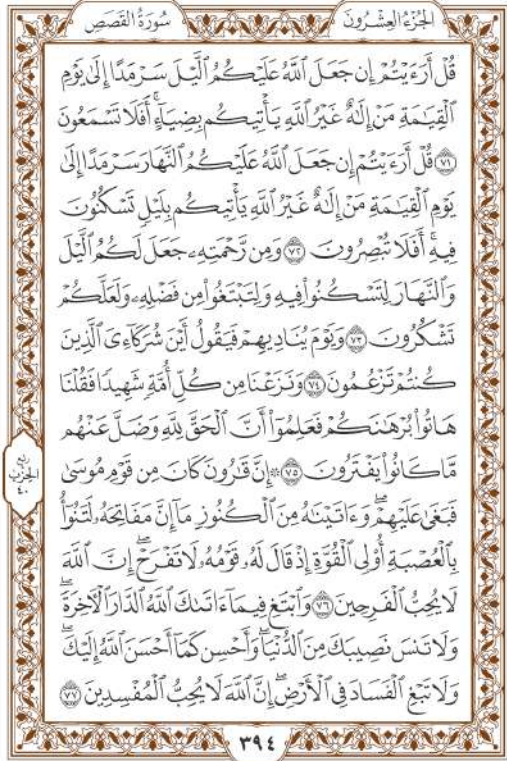 الجُزْءُ العِشْرُونَ
سُورَةُ القَصَصِ
قُلْ أَرَءَيْتُمْ إِن جَعَلَ ٱللَّهُ عَلَيْكُمُ ٱلَّيْلَ سَرْمَدًا إِلَىٰ يَوْمِ
ٱلْقِيَٰمَةِ مَنْ إِلَٰهٌ غَيْرُ ٱللَّهِ يَأْتِيكُم بِضِيَآءٍۖ أَفَلَا تَسْمَعُونَ
٧١ قُلْ أَرَءَيْتُمْ إِن جَعَلَ ٱللَّهُ عَلَيْكُمُ ٱلنَّهَارَ سَرْمَدًا إِلَىٰ
يَوْمِ ٱلْقِيَٰمَةِ مَنْ إِلَٰهٌ غَيْرُ ٱللَّهِ يَأْتِيكُم بِلَيْلٍ تَسْكُنُونَ
فِيهِۖ أَفَلَا تُبْصِرُونَ ٧٢ وَمِن رَّحْمَتِهِۦ جَعَلَ لَكُمُ ٱلَّيْلَ
وَٱلنَّهَارَ لِتَسْكُنُوا۟ فِيهِ وَلِتَبْتَغُوا۟ مِن فَضْلِهِۦ وَلَعَلَّكُمْ
تَشْكُرُونَ ٧٣ وَيَوْمَ يُنَادِيهِمْ فَيَقُولُ أَيْنَ شُرَكَآءِىَ ٱلَّذِينَ
كُنتُمْ تَزْعُمُونَ ٧٤ وَنَزَعْنَا مِن كُلِّ أُمَّةٍ شَهِيدًا فَقُلْنَا
هَاتُوا۟ بُرْهَٰنَكُمْ فَعَلِمُوٓا۟ أَنَّ ٱلْحَقَّ لِلَّهِ وَضَلَّ عَنْهُم
مَّا كَانُوا۟ يَفْتَرُونَ ٧٥ ۞ إِنَّ قَٰرُونَ كَانَ مِن قَوْمِ مُوسَىٰ
فَبَغَىٰ عَلَيْهِمْۖ وَءَاتَيْنَٰهُ مِنَ ٱلْكُنُوزِ مَآ إِنَّ مَفَاتِحَهُۥ لَتَنُوٓأُ
بِٱلْعُصْبَةِ أُو۟لِى ٱلْقُوَّةِ إِذْ قَالَ لَهُۥ قَوْمُهُۥ لَا تَفْرَحْۖ إِنَّ ٱللَّهَ
لَا يُحِبُّ ٱلْفَرِحِينَ ٧٦ وَٱبْتَغِ فِيمَآ ءَاتَىٰكَ ٱللَّهُ ٱلدَّارَ ٱلْءَاخِرَةَۖ
وَلَا تَنسَ نَصِيبَكَ مِنَ ٱلدُّنْيَاۖ وَأَحْسِن كَمَآ أَحْسَنَ ٱللَّهُ إِلَيْكَۖ
وَلَا تَبْغِ ٱلْفَسَادَ فِى ٱلْأَرْضِۖ إِنَّ ٱللَّهَ لَا يُحِبُّ ٱلْمُفْسِدِينَ ٧٧
ربع
الحزب
٤٠
٣٩٤